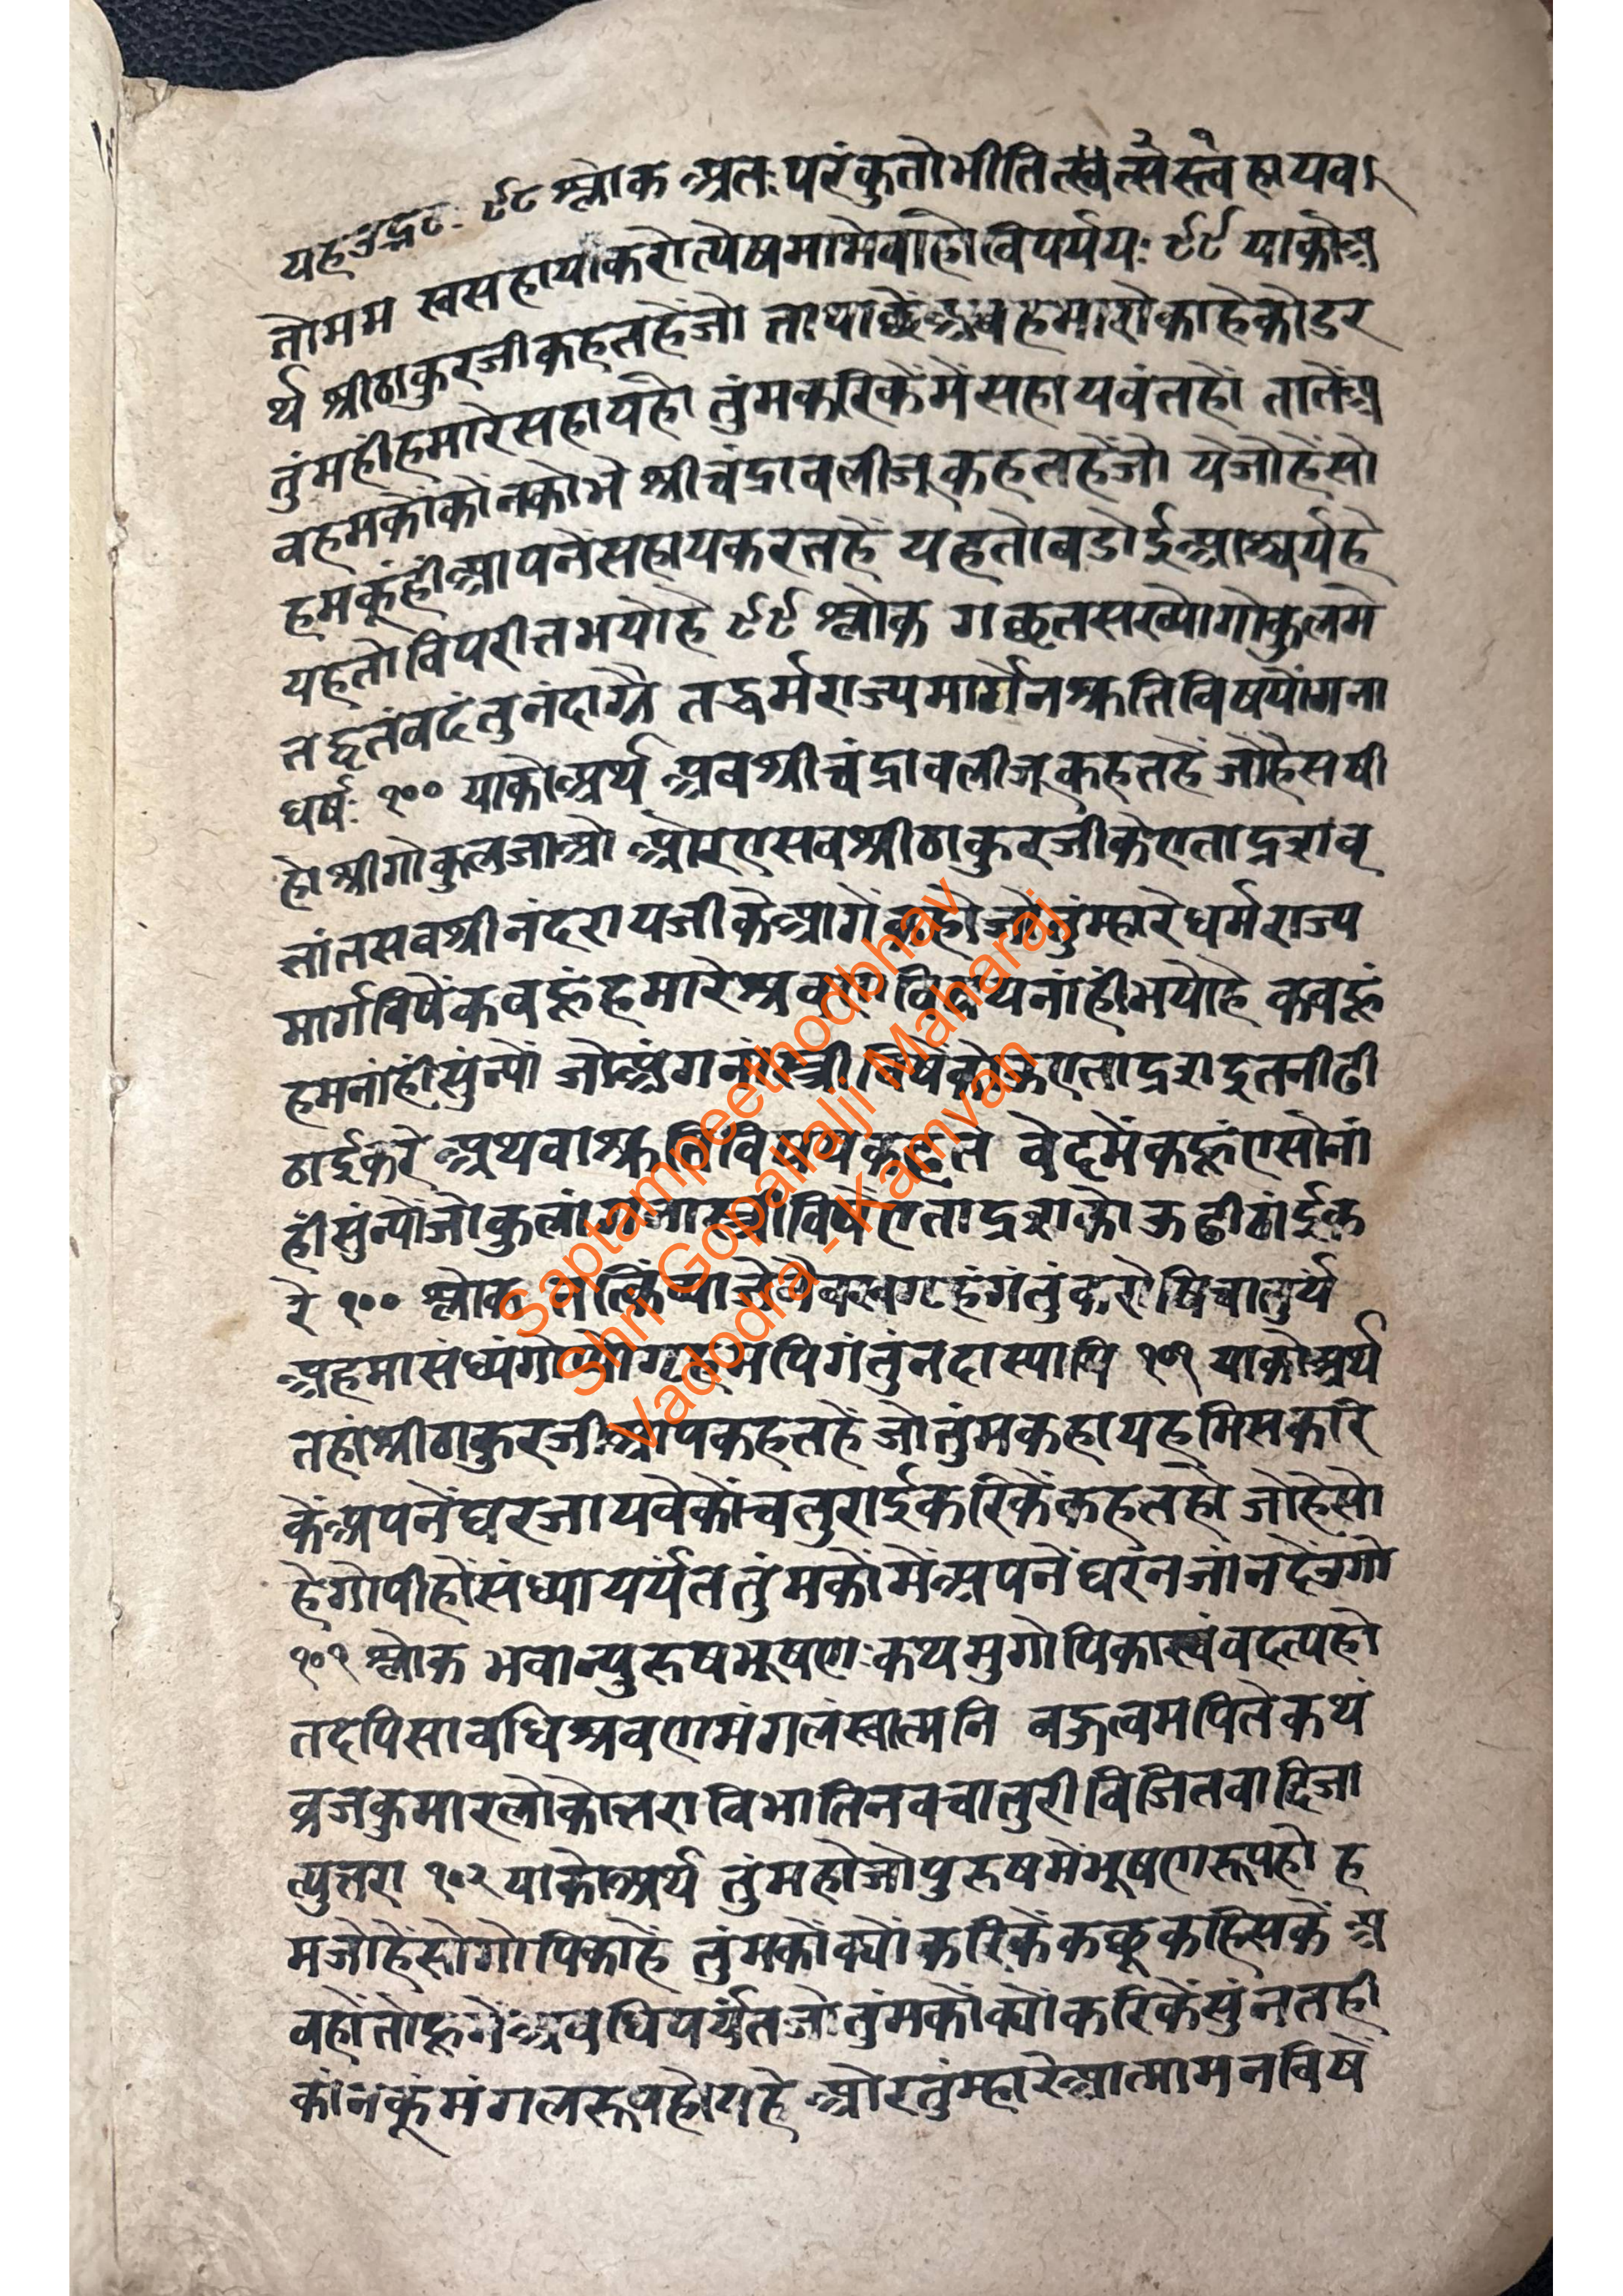 यह ९८ श्लोक अतःपरंकुतोभीतित्स्वत्सस्त्वहायवा
तोमम स्वसहायाकरोत्येषमामेवाहोविपर्ययः ९९ याकोअ
र्थ श्रीठाकुरजीकहतहेंजो ताथाछेंअबहमारोकाहेकोडर
तुंमहीहमारेसहायहो तुंमकरिकेंमेंसहायवंतहों तातेंअ
बहमकोंकोंनकोभे श्रीचंद्रावलीजूकहतहेंजो येजोहेंसो
हमकूंहींआपनेंसहायकरतहें यहतोबडोईआश्चर्यहे
यहतोविपरीतभयोहे ९९ श्लोक गछतसख्योगोकुलमे
तद्वृतंवदंतुनंदाग्रे तद्धर्मराज्यमार्गेनश्रुतिविषयोंगना
धर्षः १०० याकोअर्थ अबश्रीचंद्रावलीजूकहतहें जोहेसषी
होश्रीगोकुलजाओ ओरएसबश्रीठाकुरजीकेएताद्रशवृ
त्तांतसबश्रीनंदरायजीकेआगेंकहो जोतुंम्हारेधर्मराज्य
मार्गविषेंकबहूंहमारेश्रवणविषयनांहींभयोहे कबहूं
हमनांहींसुंन्यों जोअंगनास्त्रीविषेंकोऊएताद्रशइतनीढी
ठाईकरे अथवाश्रुतिविषयकहतें वेदमेंकहूंएसोनां
हींसुंन्योंजोकुलांगनास्त्रीविषेंएताद्रशकोऊढीठांईक
रे १०० श्लोक गृहंगंतुंकरोषिचातुर्यं
अहमासंध्यंगोपीगृहमपिगंतुंनदास्यामि १०१ याकोअर्थ
तहांश्रीठाकुरजीआपकहतहें जोतुंमकहायहमिसकरि
केंअपनेंघरजायवेकोंचतुराईकरिकेंकहतहो जोहेसो
हेगोपीहोंसंध्यापर्यंततुंमकोंमेंअपनेंघरनजांनदेंउंगो
१०१ श्लोक भवान्पुरुषभूषणःकथमुगोपिकास्त्वंवदत्यहो
तदपिसावधिश्रवणमंगलंस्वात्मनि बहुत्वमपितेकथं
व्रजकुमारलोकोत्तरा विभातिनवचातुरीविजितवादिजा
त्युत्तरा १०२ याकोअर्थ तुंमहोजोपुरुषमेंभूषणरूपहो ह
मजोहेंसोगोपिकाहें तुंमकोंक्योंकरिकेंकछूकहिसकें अ
बहोंतोहूनेंअवधिपर्यंतजोतुंमकोंक्योंकरिकेंसुंनतही
कांनकूंमंगलरूपहोयहे ओरतुंम्हारेआत्मामनविषें
Saptampeethodbhav
Shri Gopallalji Maharaj
Vadodra - Kamvan